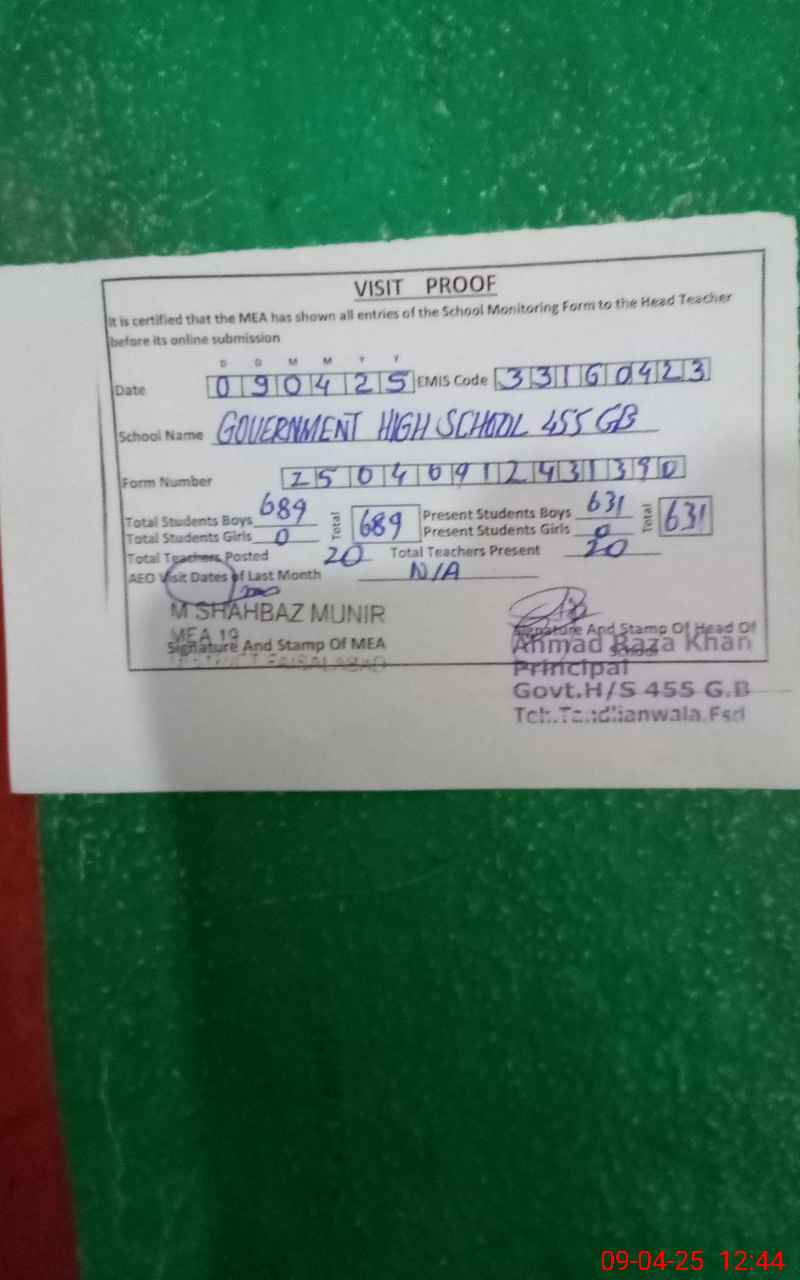 VISIT PROOF
It is certified that the MEA has shown all entries of the School Monitoring Form to the Head Teacher
before its online submission
D D M M Y Y
Date 090425 EMIS Code 33160423
School Name GOVERNMENT HIGH SCHOOL 455 GB
Form Number 250409124313
Total Students Boys 689 Total 689 Present Students Boys 631 Total 631
Total Students Girls 0 Present Students Girls 0
Total Teachers Posted 20 Total Teachers Present 20
AEO Visit Dates of Last Month N/A
M SHAHBAZ MUNIR
MEA 19
Signature And Stamp Of MEA
DISTRICT FAISALABAD
Signature And Stamp Of Head Of
School
Ahmad Raza Khan
Principal
Govt.H/S 455 G.B
Teh.Tandlianwala.Fsd
09-04-25 12:44